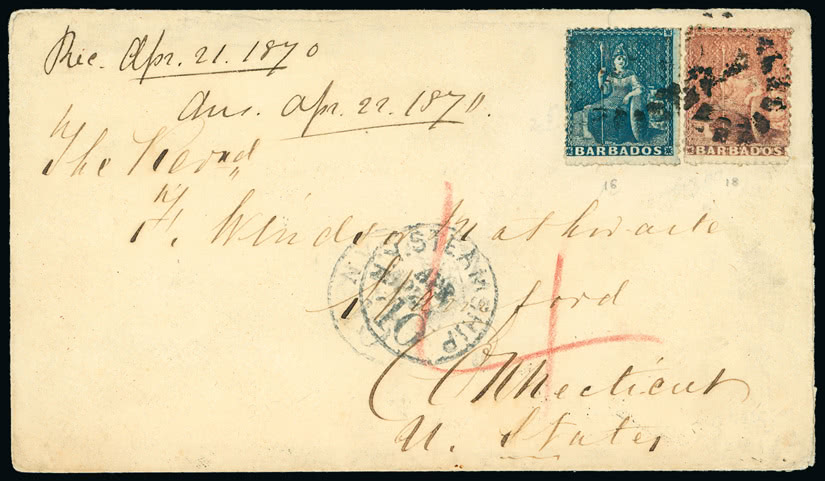 Rec. Apr. 21. 1870
Ans. Apr. 22. 1870.
BARBADOS
BARBADOS
16
18
The Rev'd
F. Windsor
N.Y. STEAMSHIP
APR
10
ford
Connecticut
U. States
4